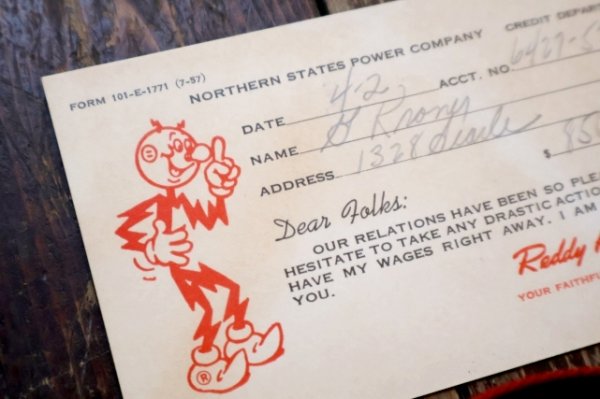 FORM 101-E-1771 (7-57)
NORTHERN STATES POWER COMPANY CREDIT DEPAR
DATE 4-2 ACCT. NO. 6427-5
NAME G Krony
ADDRESS 1328 Searle $ 850
Dear Folks:
OUR RELATIONS HAVE BEEN SO PLEA
HESITATE TO TAKE ANY DRASTIC ACTIO
HAVE MY WAGES RIGHT AWAY. I AM
YOU.
Reddy
YOUR FAITHFU
®